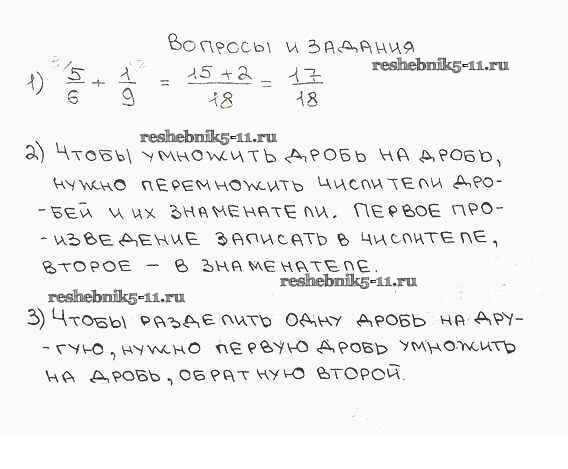 ВОПРОСЫ И ЗАДАНИЯ
reshebnik5-11.ru
1) 5/6 + 1/9 = (15+2)/18 = 17/18
reshebnik5-11.ru
2) ЧТОБЫ УМНОЖИТЬ ДРОБЬ НА ДРОБЬ,
НУЖНО ПЕРЕМНОЖИТЬ ЧИСЛИТЕЛИ ДРО-
-БЕЙ И ИХ ЗНАМЕНАТЕЛИ. ПЕРВОЕ ПРО-
-ИЗВЕДЕНИЕ ЗАПИСАТЬ В ЧИСЛИТЕЛЕ,
ВТОРОЕ – В ЗНАМЕНАТЕЛЕ.
reshebnik5-11.ru
reshebnik5-11.ru
3) ЧТОБЫ РАЗДЕЛИТЬ ОДНУ ДРОБЬ НА ДРУ-
-ГУЮ, НУЖНО ПЕРВУЮ ДРОБЬ УМНОЖИТЬ
НА ДРОБЬ, ОБРАТНУЮ ВТОРОЙ.